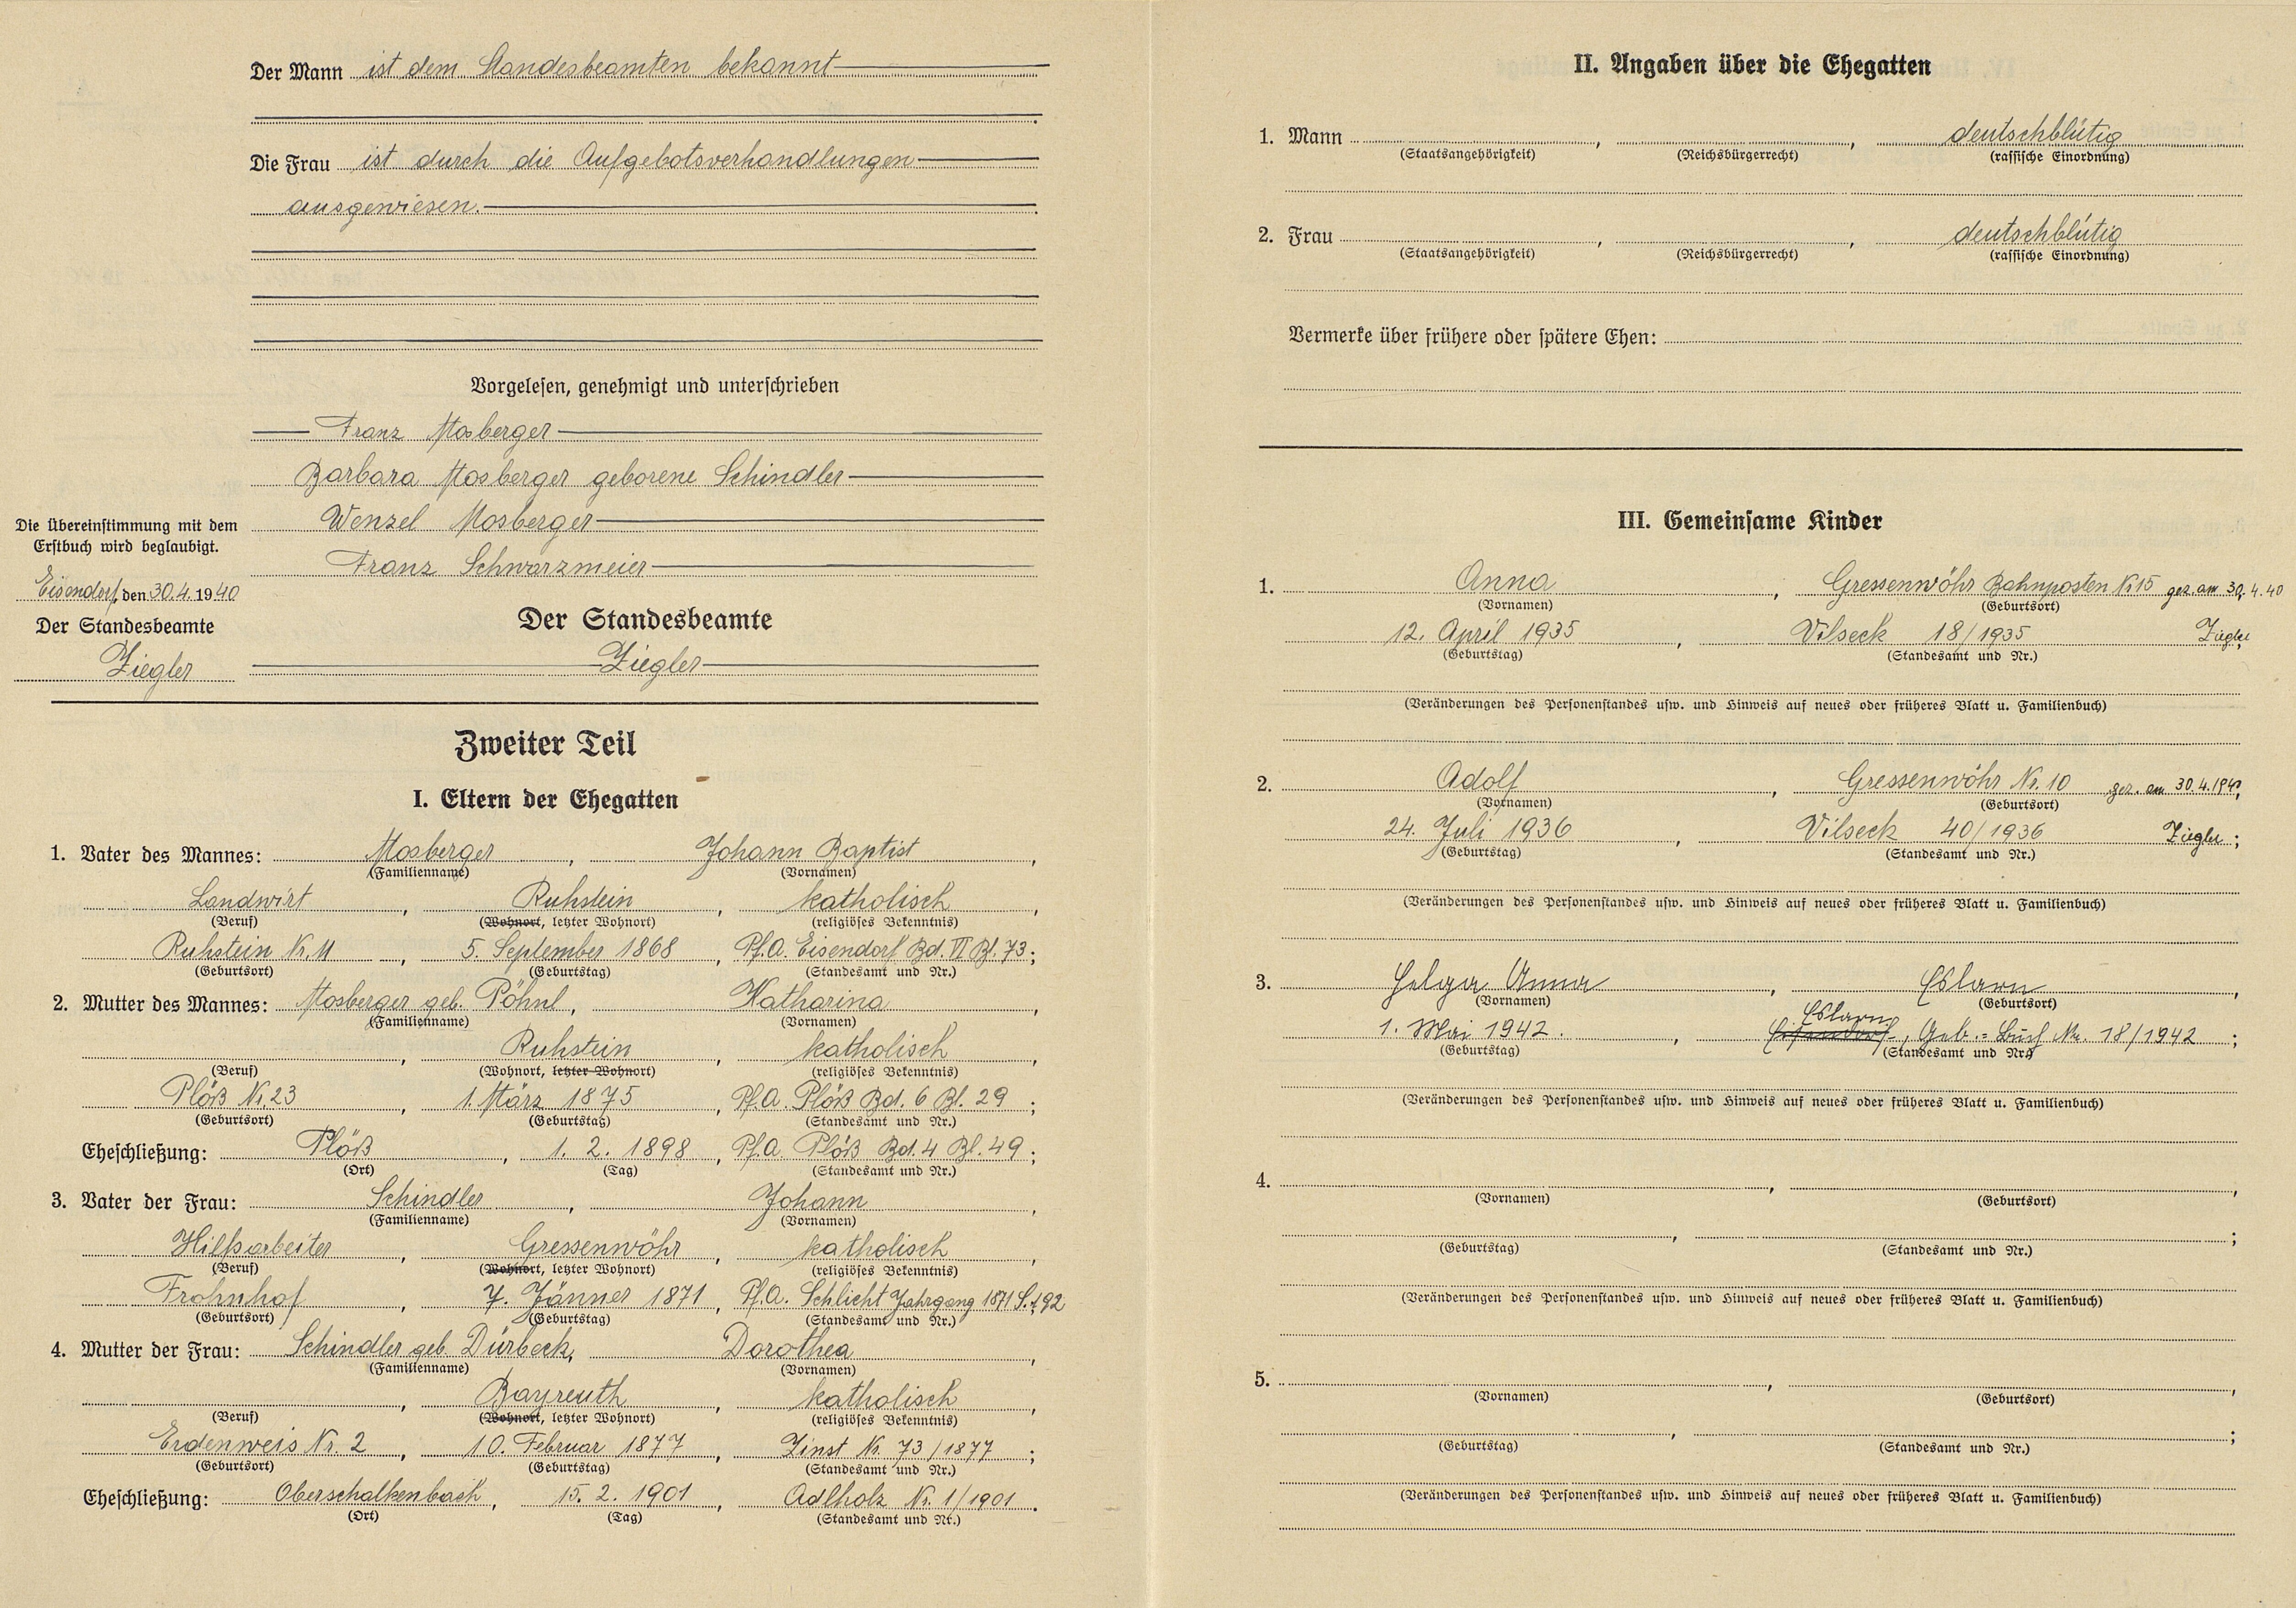 Der Mann ist dem Standesbeamten bekannt
Die Frau ist durch die Aufgebotsverhandlungen
ausgewiesen.
Vorgelesen, genehmigt und unterschrieben
Franz Mosberger
Barbara Mosberger geborene Schindler
Wenzel Mosberger
Franz Schwarzmeier
Die Übereinstimmung mit dem
Erstbuch wird beglaubigt.
Eisendorf, den 30.4.1940
Der Standesbeamte
Ziegler
Der Standesbeamte
Ziegler
Zweiter Teil
I. Eltern der Ehegatten
1. Vater des Mannes: Mosberger, Johann Baptist,
(Familienname) (Vornamen)
Landwirt, Ruhstein, katholisch,
(Beruf) (Wohnort, letzter Wohnort) (religiöses Bekenntnis)
Ruhstein Nr. 11, 5. September 1868, Pf.A. Eisendorf Bd. VI Bl. 73;
(Geburtsort) (Geburtstag) (Standesamt und Nr.)
2. Mutter des Mannes: Mosberger geb. Pöhnl, Katharina,
(Familienname) (Vornamen)
, Ruhstein, katholisch,
(Beruf) (Wohnort, letzter Wohnort) (religiöses Bekenntnis)
Plöß Nr. 23, 1. März 1875, Pf.A. Plöß Bd. 6 Bl. 29;
(Geburtsort) (Geburtstag) (Standesamt und Nr.)
Eheschließung: Plöß, 1. 2. 1898, Pf.A. Plöß Bd. 4 Bl. 49;
(Ort) (Tag) (Standesamt und Nr.)
3. Vater der Frau: Schindler, Johann,
(Familienname) (Vornamen)
Hilfsarbeiter, Gressenwöhr, katholisch,
(Beruf) (Wohnort, letzter Wohnort) (religiöses Bekenntnis)
Frohnhof, 7. Jänner 1871, Pf.A. Schlicht Jahrgang 1871 S. 192
(Geburtsort) (Geburtstag) (Standesamt und Nr.)
4. Mutter der Frau: Schindler geb. Dürbeck, Dorothea,
(Familienname) (Vornamen)
, Bayreuth, katholisch,
(Beruf) (Wohnort, letzter Wohnort) (religiöses Bekenntnis)
Erdenweis Nr. 2, 10. Februar 1877, Zinst Nr. 73/1877;
(Geburtsort) (Geburtstag) (Standesamt und Nr.)
Eheschließung: Oberschalkenbach, 15. 2. 1901, Adlholz Nr. 1/1901.
(Ort) (Tag) (Standesamt und Nr.)
II. Angaben über die Ehegatten
1. Mann , , deutschblütig
(Staatsangehörigkeit) (Reichsbürgerrecht) (rassische Einordnung)
2. Frau , , deutschblütig
(Staatsangehörigkeit) (Reichsbürgerrecht) (rassische Einordnung)
Vermerke über frühere oder spätere Ehen:
III. Gemeinsame Kinder
1. Anna, Gressenwöhr Bahnposten Nr. 15 gez. am 30.4.40
(Vornamen) (Geburtsort)
12. April 1935, Vilseck 18/1935 Ziegler;
(Geburtstag) (Standesamt und Nr.)
(Veränderungen des Personenstandes usw. und Hinweis auf neues oder früheres Blatt u. Familienbuch)
2. Adolf, Gressenwöhr Nr. 10 gez. am 30.4.1940,
(Vornamen) (Geburtsort)
24. Juli 1936, Vilseck 40/1936 Ziegler;
(Geburtstag) (Standesamt und Nr.)
(Veränderungen des Personenstandes usw. und Hinweis auf neues oder früheres Blatt u. Familienbuch)
3. Helga Anna, Eslarn,
(Vornamen) (Geburtsort)
Eslarn
1. Mai 1942., Eisendorf, Geb.=Buch Nr. 18/1942;
(Geburtstag) (Standesamt und Nr.)
(Veränderungen des Personenstandes usw. und Hinweis auf neues oder früheres Blatt u. Familienbuch)
4. , ,
(Vornamen) (Geburtsort)
, ;
(Geburtstag) (Standesamt und Nr.)
(Veränderungen des Personenstandes usw. und Hinweis auf neues oder früheres Blatt u. Familienbuch)
5. , ,
(Vornamen) (Geburtsort)
, ;
(Geburtstag) (Standesamt und Nr.)
(Veränderungen des Personenstandes usw. und Hinweis auf neues oder früheres Blatt u. Familienbuch)